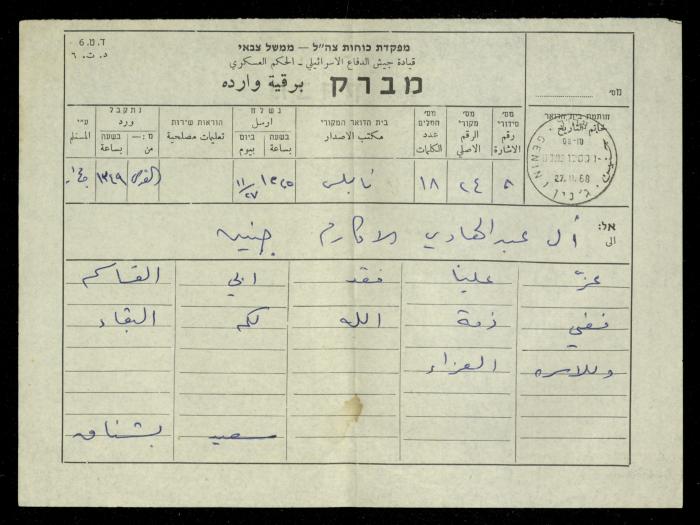 ד.ט. 6
د.ت. ٦
מפקדת כוחות צה"ל — ממשל צבאי
قيادة جيش الدفاع الاسرائيلي - الحكم العسكري
מברק برقية وارده
מס'
נתקבל
ورد
נשלח
ارسل
ע"י
المستلم
בשעה
بساعة
מ:—
من
הוראות שירות
تعليمات مصلحية
ביום
بيوم
בשעה
بساعة
בית הדואר המקורי
مكتب الاصدار
מס' המלים
عدد الكلمات
מס' מקורי
الرقم الاصلي
מס' סידורי
رقم الاشارة
חותמת בית הדואר
خاتم التاريخ
GENIN
27.11.68
ג'נין
جنين
٨ ٢٤ ١٨ نابلس ١٣٢٥ ٢٧/١١ القدس ١٣٤٩
אל:
الى
آل عبد الهادي الاكارم جنين
عزّ علينا فقد ابي القاسم
ففي ذمة الله لكم البقاء
وللاسره العزاء
سعيد بشناق